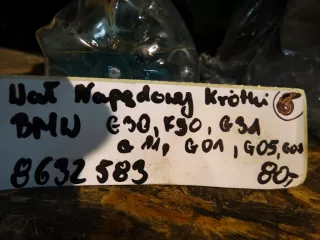 Wał Napędowy Krótki 6
BMW G30, F90, G31
G11, G01, G05, G08
8632583 80,-